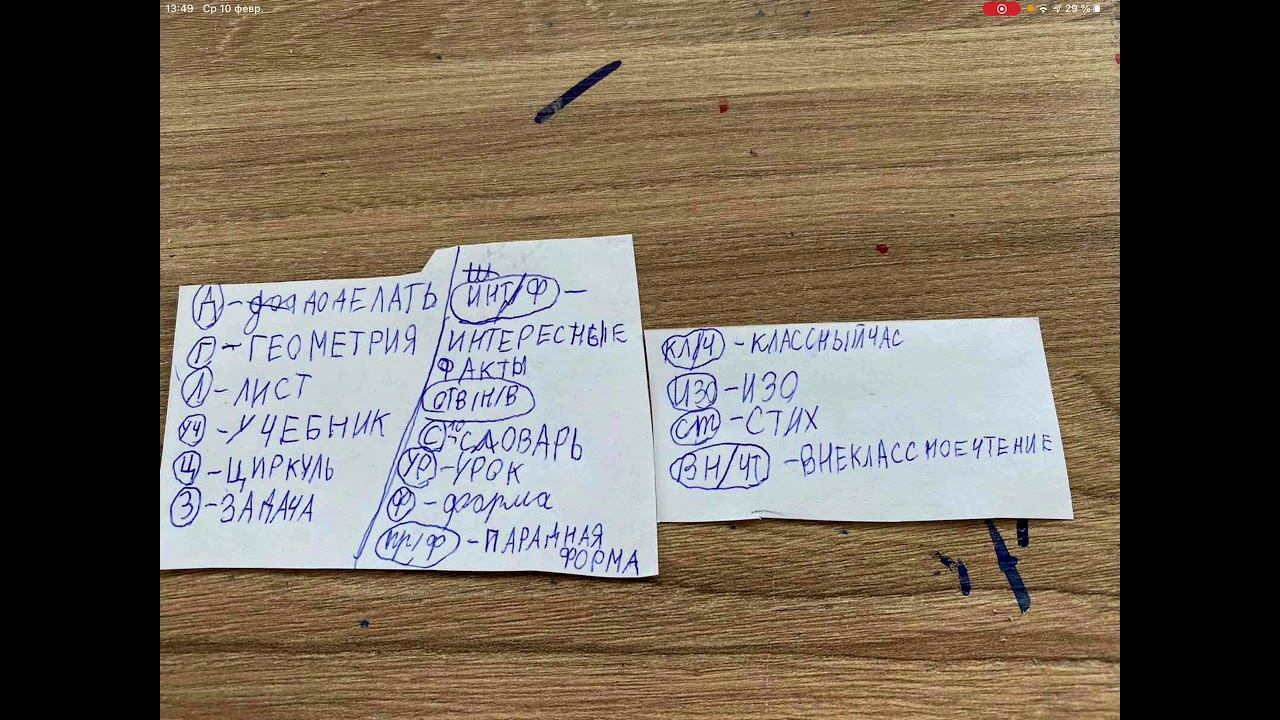 13:49 Ср 10 февр.
29 %
Д - ДОДЕЛАТЬ
Г - ГЕОМЕТРИЯ
Л - ЛИСТ
УЧ - УЧЕБНИК
Ц - ЦИРКУЛЬ
З - ЗАДАЧА
ИНТ/Ф -
ИНТЕРЕСНЫЕ
ФАКТЫ
ОТВ/Н/В
С - СЛОВАРЬ
УР - УРОК
Ф - форма
ПР/Ф - ПАРАДНАЯ
ФОРМА
КЛ/Ч - КЛАССНЫЙ ЧАС
ИЗО - ИЗО
СТ - СТИХ
ВН/ЧТ - ВНЕКЛАССНОЕ ЧТЕНИЕ